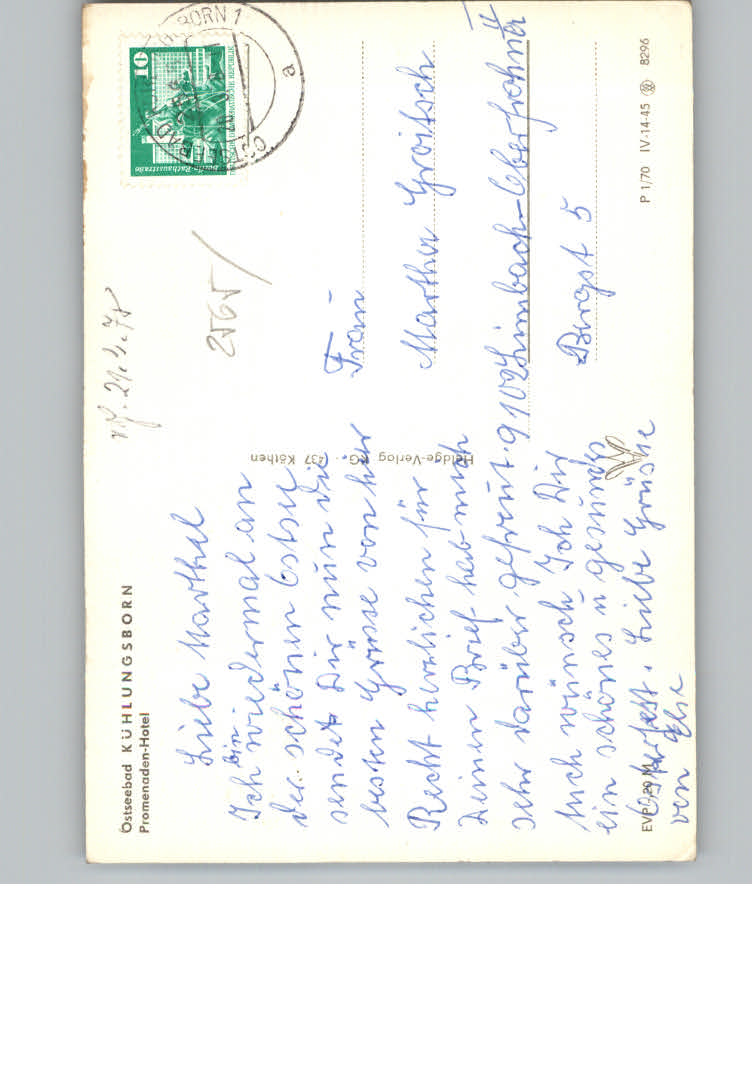 Ostseebad KÜHLUNGSBORN
Promenaden-Hotel
Liebe Marthel
Ich bin wiedermal an
der schönen Ostsee
sendet Dir nun die
besten Grüsse von hier
Recht herzlichen für
Deinen Brief hab mich
sehr darüber gefreut.
Auch wünsch Ich Dir
ein schönes u gesundes
Osterfest. Liebe Grüsse
von Else
EVP 0,20 M
Heldge-Verlag KG · 437 Köthen
21.3.75
2565/
10
Berlin-Rathausstraße
BORN 1
a
Frau
Martha Groitzsch
9102 Limbach-Oberfrohna II
Burgst 5
P 1/70 IV-14-45 8296